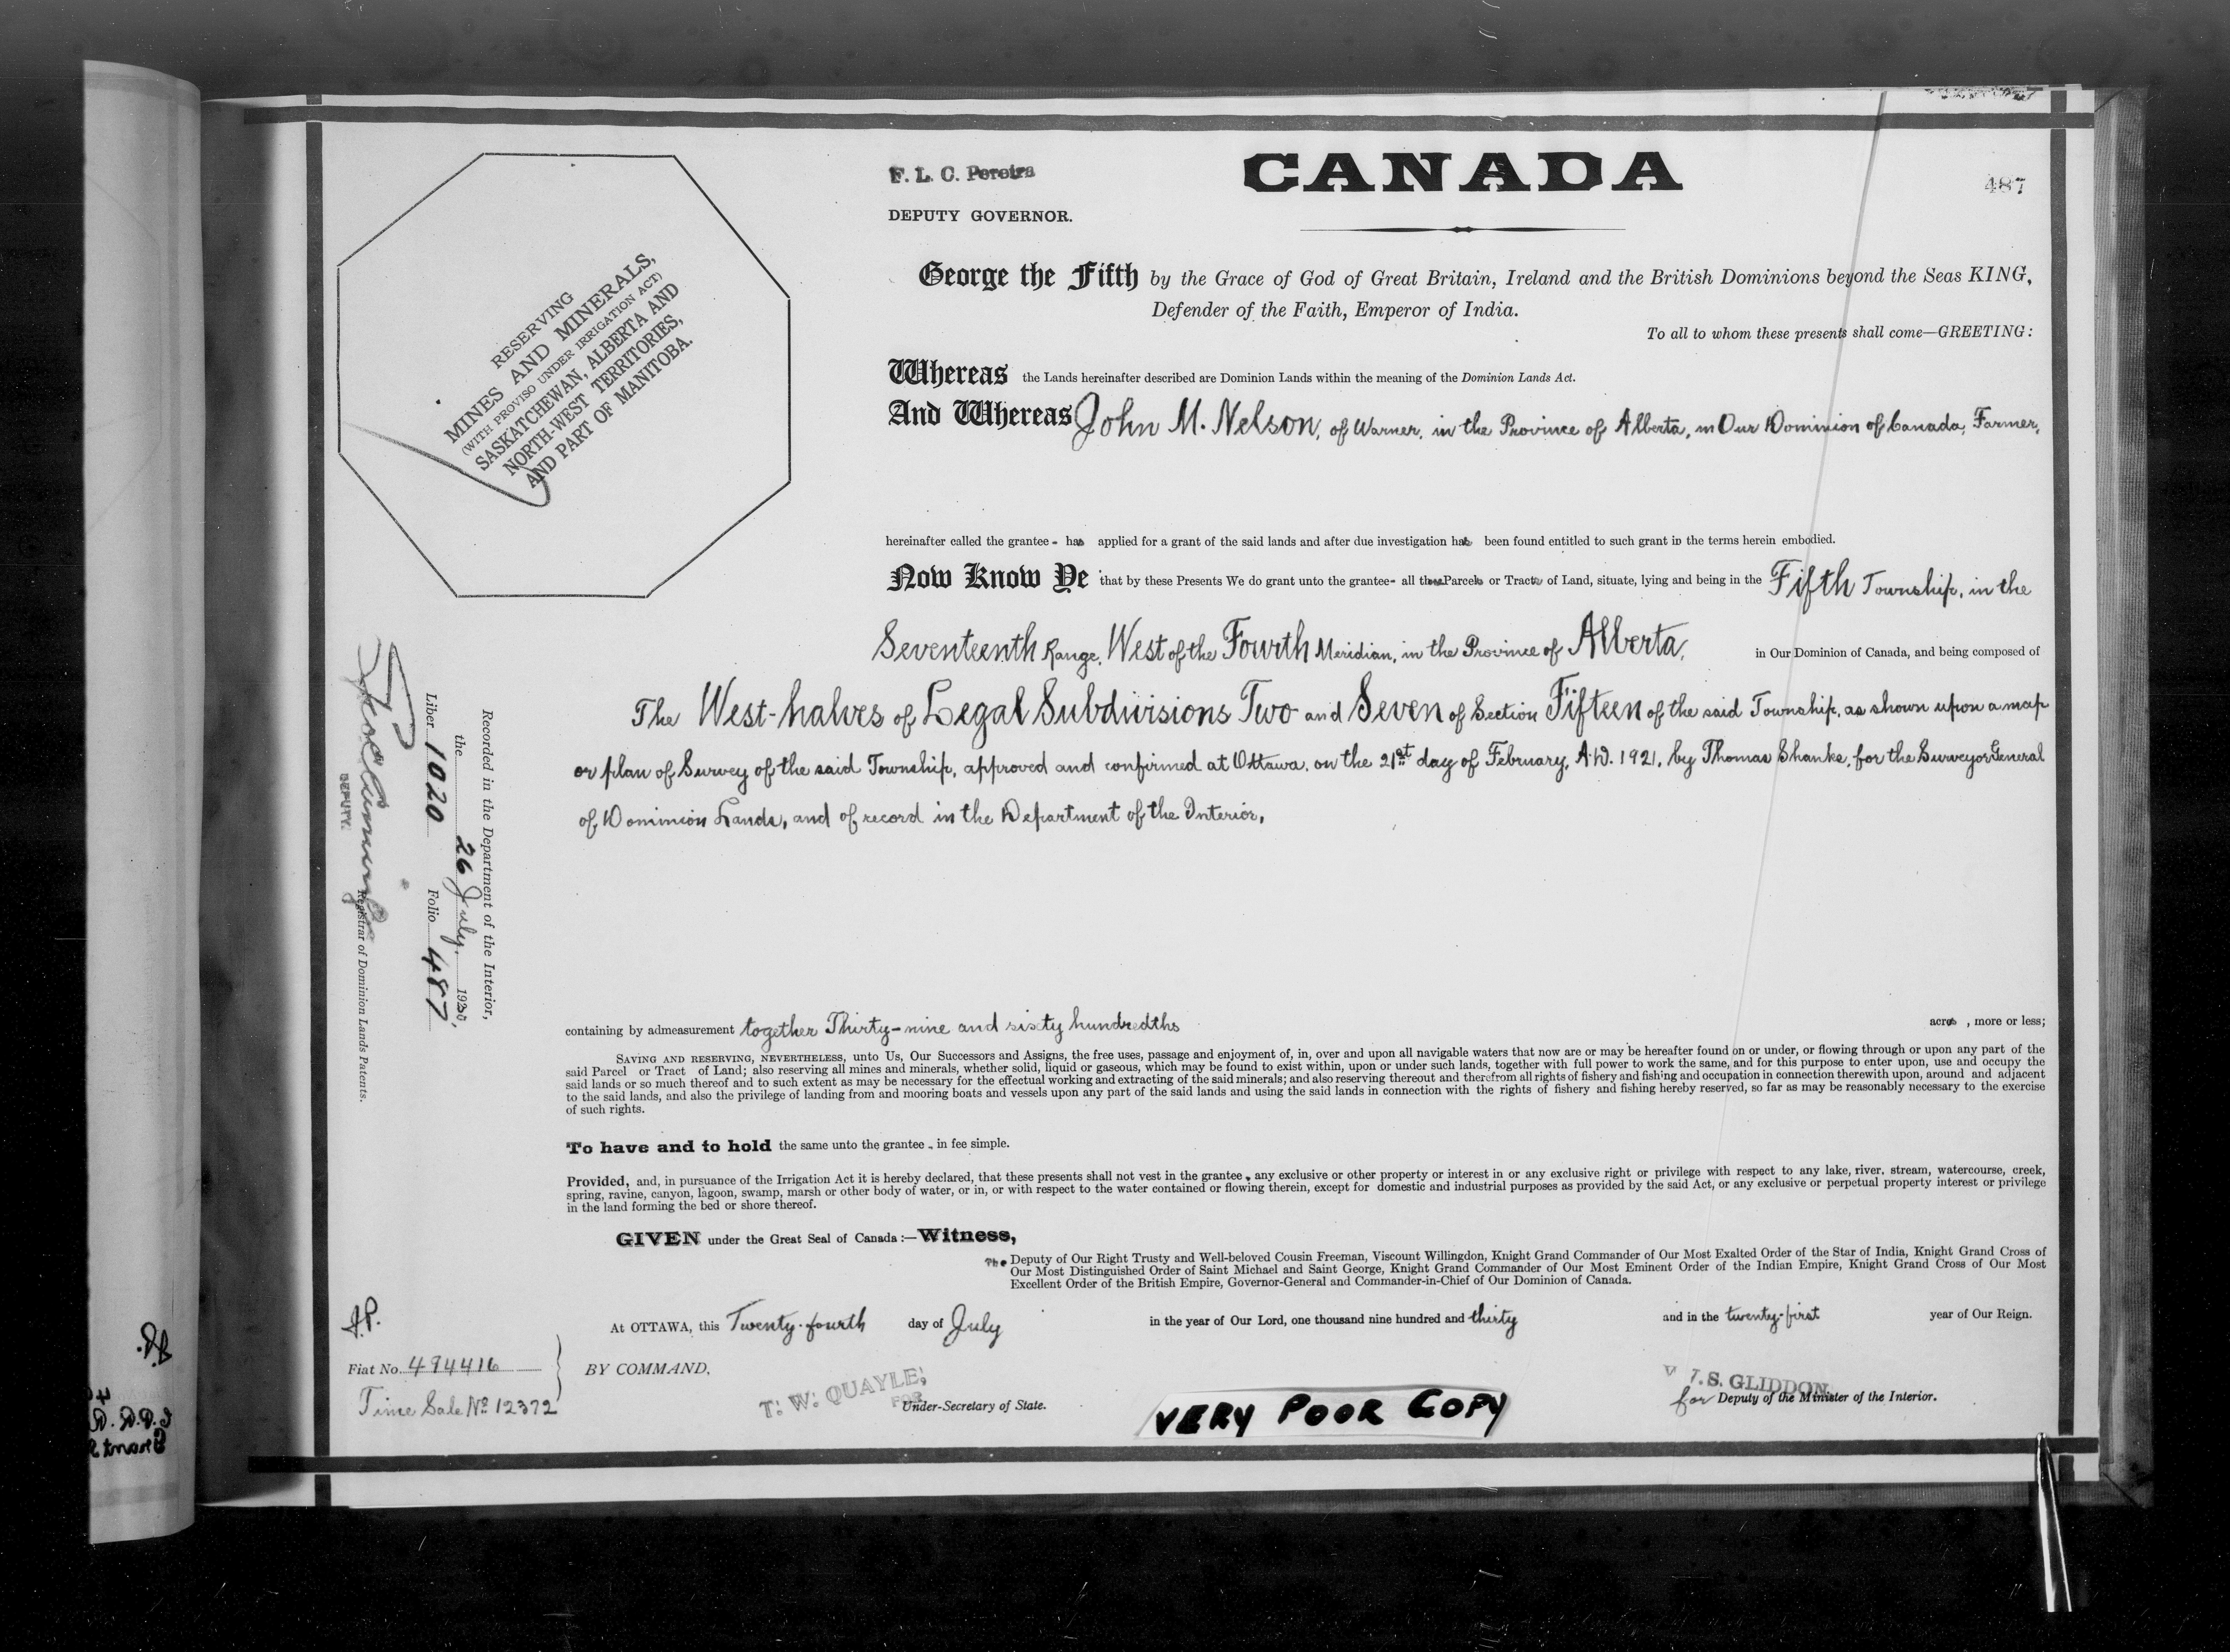 F. L. C. Pereira
DEPUTY GOVERNOR.
CANADA
487
RESERVING
MINES AND MINERALS,
(WITH PROVISO UNDER IRRIGATION ACT)
SASKATCHEWAN, ALBERTA AND
NORTH-WEST TERRITORIES,
AND PART OF MANITOBA.
George the Fifth by the Grace of God of Great Britain, Ireland and the British Dominions beyond the Seas KING,
Defender of the Faith, Emperor of India.
To all to whom these presents shall come—GREETING:
Whereas the Lands hereinafter described are Dominion Lands within the meaning of the Dominion Lands Act.
And Whereas John M. Nelson, of Warner, in the Province of Alberta, in Our Dominion of Canada, Farmer,
hereinafter called the grantee - has applied for a grant of the said lands and after due investigation has been found entitled to such grant in the terms herein embodied.
Now Know Ye that by these Presents We do grant unto the grantee - all those Parcels or Tracts of Land, situate, lying and being in the Fifth Township, in the
Seventeenth Range, West of the Fourth Meridian, in the Province of Alberta, in Our Dominion of Canada, and being composed of
The West-halves of Legal Subdivisions Two and Seven of Section Fifteen of the said Township, as shown upon a map
or plan of Survey of the said Township, approved and confirmed at Ottawa, on the 21st day of February, A.D. 1921, by Thomas Shanks, for the Surveyor General
of Dominion Lands, and of record in the Department of the Interior,
Recorded in the Department of the Interior,
the 26 July, 1930,
Liber 1020 Folio 487
DEPUTY.
Registrar of Dominion Lands Patents.
containing by admeasurement together Thirty-nine and sixty hundredths acres , more or less;
SAVING AND RESERVING, NEVERTHELESS, unto Us, Our Successors and Assigns, the free uses, passage and enjoyment of, in, over and upon all navigable waters that now are or may be hereafter found on or under, or flowing through or upon any part of the
said Parcel or Tract of Land; also reserving all mines and minerals, whether solid, liquid or gaseous, which may be found to exist within, upon or under such lands, together with full power to work the same, and for this purpose to enter upon, use and occupy the
said lands or so much thereof and to such extent as may be necessary for the effectual working and extracting of the said minerals; and also reserving thereout and therefrom all rights of fishery and fishing and occupation in connection therewith upon, around and adjacent
to the said lands, and also the privilege of landing from and mooring boats and vessels upon any part of the said lands and using the said lands in connection with the rights of fishery and fishing hereby reserved, so far as may be reasonably necessary to the exercise
of such rights.
To have and to hold the same unto the grantee - in fee simple.
Provided, and, in pursuance of the Irrigation Act it is hereby declared, that these presents shall not vest in the grantee, any exclusive or other property or interest in or any exclusive right or privilege with respect to any lake, river, stream, watercourse, creek,
spring, ravine, canyon, lagoon, swamp, marsh or other body of water, or in, or with respect to the water contained or flowing therein, except for domestic and industrial purposes as provided by the said Act, or any exclusive or perpetual property interest or privilege
in the land forming the bed or shore thereof.
GIVEN under the Great Seal of Canada:—Witness,
The Deputy of Our Right Trusty and Well-beloved Cousin Freeman, Viscount Willingdon, Knight Grand Commander of Our Most Exalted Order of the Star of India, Knight Grand Cross of
Our Most Distinguished Order of Saint Michael and Saint George, Knight Grand Commander of Our Most Eminent Order of the Indian Empire, Knight Grand Cross of Our Most
Excellent Order of the British Empire, Governor-General and Commander-in-Chief of Our Dominion of Canada.
At OTTAWA, this Twenty-fourth day of July in the year of Our Lord, one thousand nine hundred and thirty and in the twenty-first year of Our Reign.
Fiat No. 494416
Time Sale No 12372
BY COMMAND,
T. W. QUAYLE,
FOR
Under-Secretary of State.
VERY POOR COPY
J.S. GLIDDON
for Deputy of the Minister of the Interior.